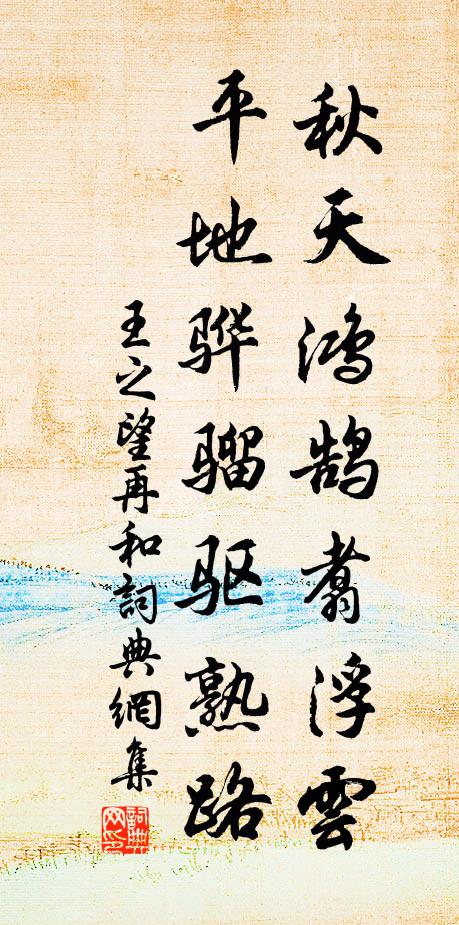 秋天鸿鹄翥浮雲
平地骅骝驱熟路
王之望再和詞典網集
詞典网印